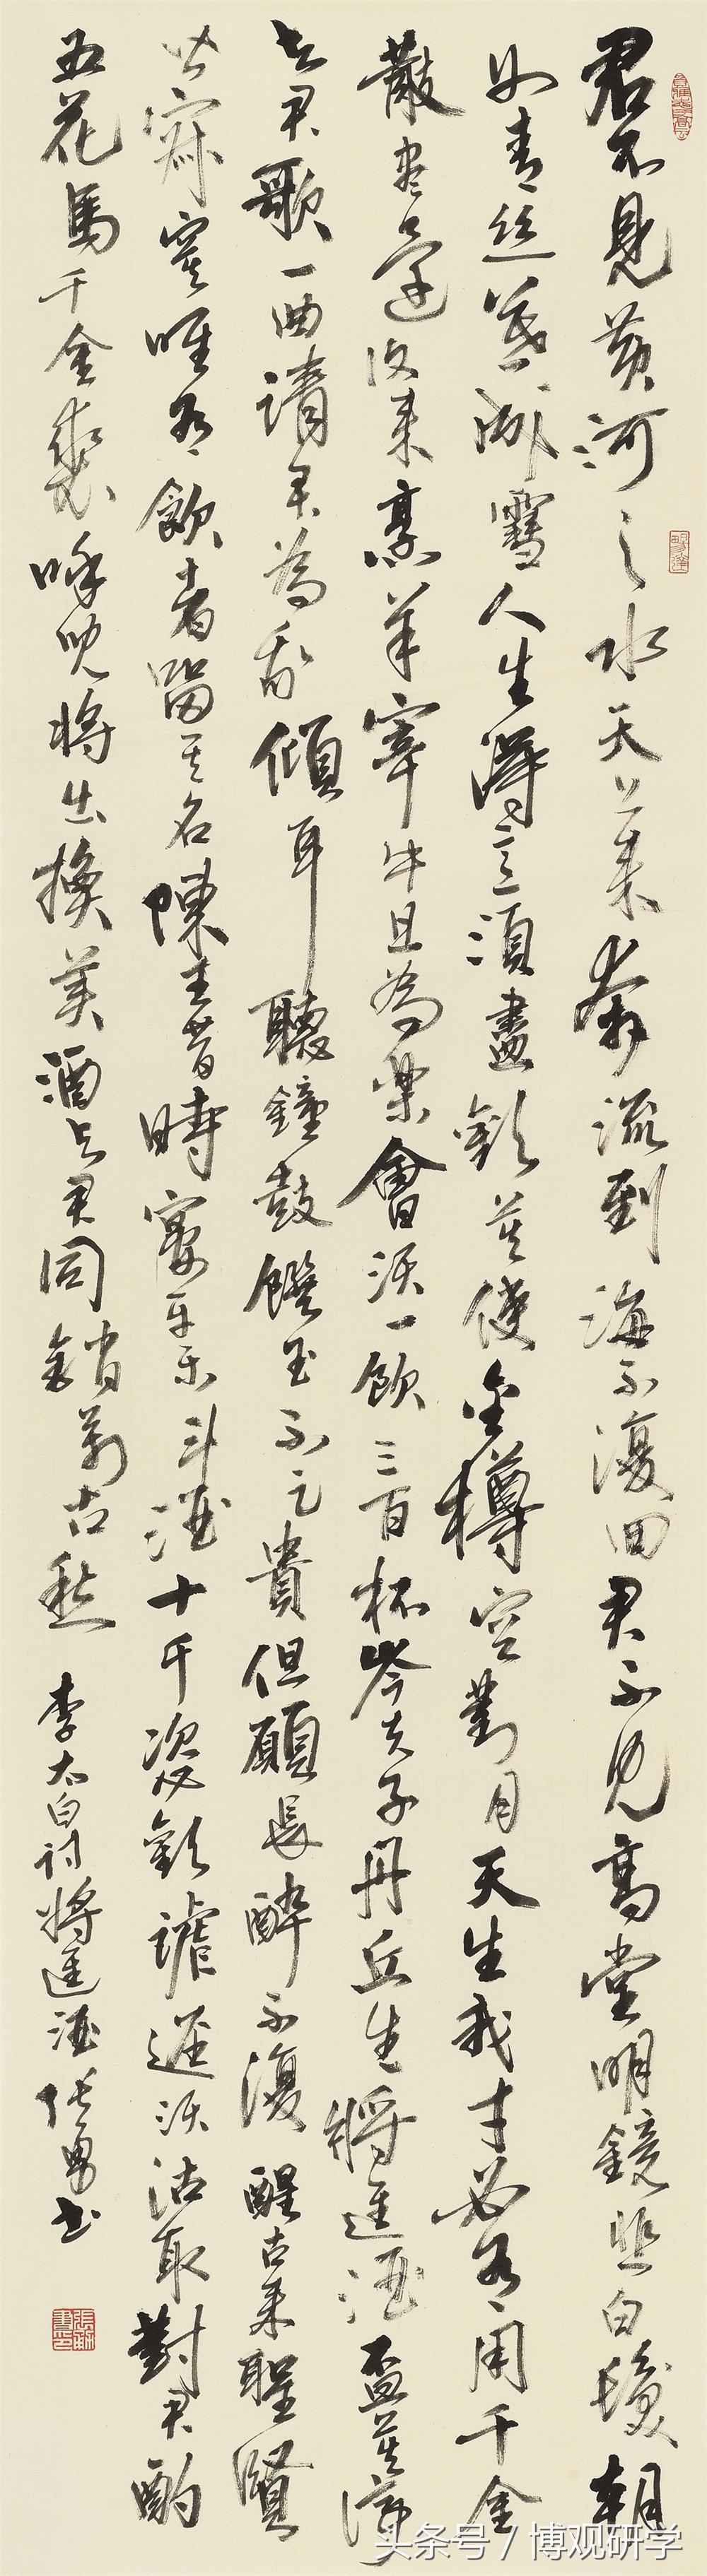 君不見黃河之水天上來奔流到海不復回君不見高堂明鏡悲白髮朝
如青絲暮成雪人生得意須盡歡莫使金樽空對月天生我才必有用千金
散盡還復來烹羊宰牛且為樂會須一飲三百杯岑夫子丹丘生將進酒盃莫停
與君歌一曲請君為我傾耳聽鐘鼓饌玉不足貴但願長醉不復醒古來聖賢
皆寂寞唯有飲者留其名陳王昔時宴平樂斗酒十千恣歡謔逕須沽取對君酌
五花馬千金裘呼兒將出換美酒與君同銷萬古愁 李太白詩將進酒 張勇書
头条号 / 博观研学